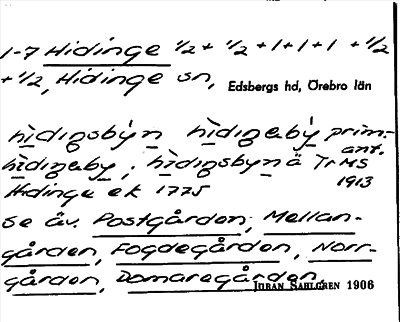 1-7 Hidinge 1/2 + 1/2 + 1 + 1 + 1 + 1/2
+ 1/2, Hidinge sn,
Edsbergs hd, Örebro län
hìdıŋsbýn hìdıŋəbẏ prim.-
ant.
hìdıŋəby, hìdıŋsbynä Tr MS
1913
Hidinge ek 1775
se äv. Postgården, Mellan-
gården, Fogdegården, Norr-
gården, Domaregården,
JÖRAN SAHLGREN 1906